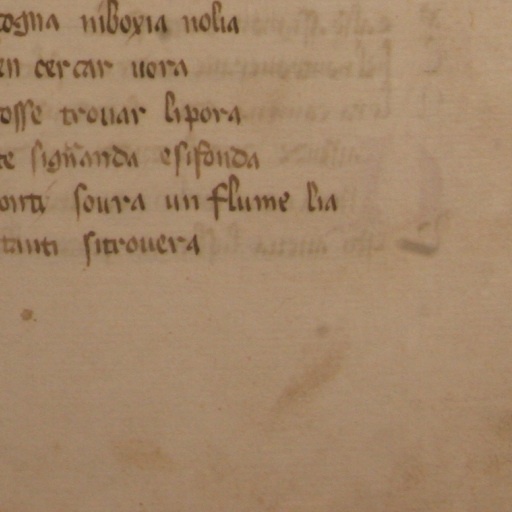 togna niboxia nolia
en cercar uora
osse trouar lipora
te sigñanda esifonda
onti soura un flume lia
tanti sitrouera